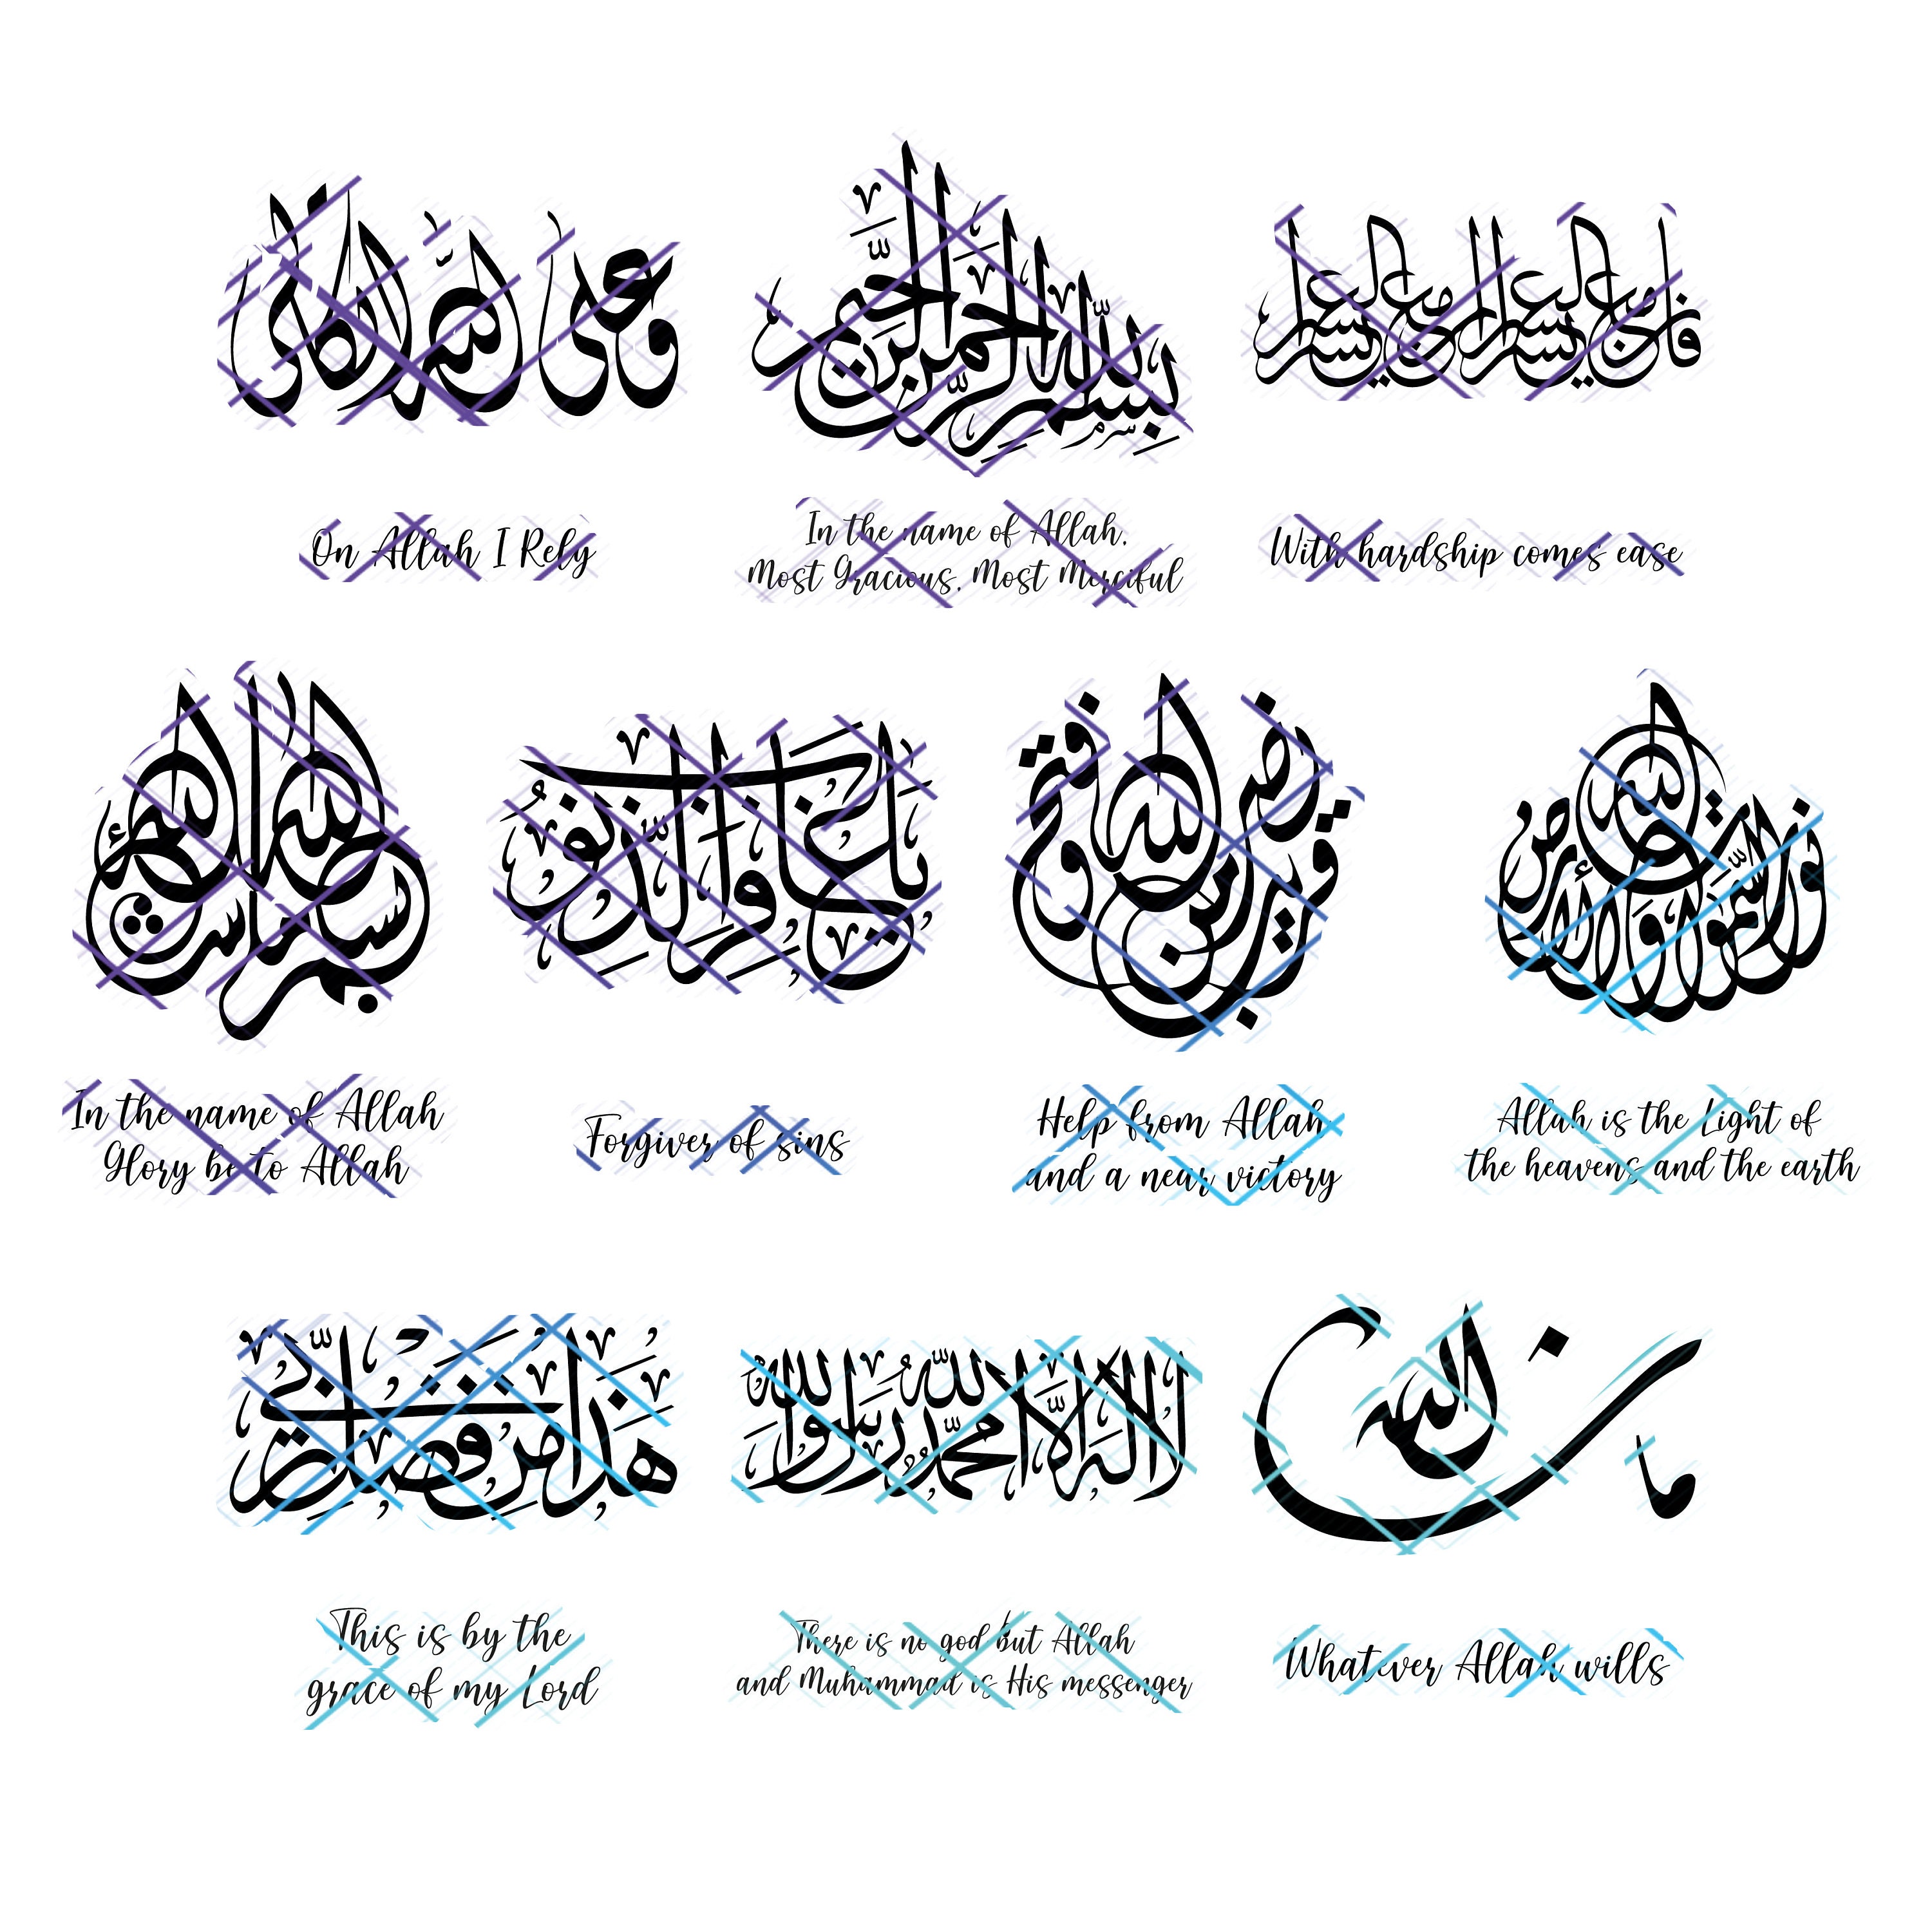 وعلى الله اتكالي
بسم الله الرحمن الرحيم
فإن مع العسر يسرا إن مع العسر يسرا
On Allah I Rely
In the name of Allah,
Most Gracious, Most Merciful
With hardship comes ease
بسم الله ما شاء الله
نصر من الله وفتح قريب
الله نور السموات والأرض
In the name of Allah
Glory be to Allah
Forgiver of sins
Help from Allah
and a near victory
Allah is the Light of
the heavens and the earth
هٰذَا مِنْ فَضْلِ رَبِّي
لا إله إلا الله محمد رسول الله
ما شاء الله
This is by the
grace of my Lord
There is no god but Allah
and Muhammad is His messenger
Whatever Allah wills